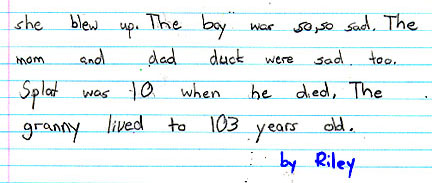 she blew up. The boy was so,so sad. The
mom and dad duck were sad too.
Splat was 10 when he died, The
granny lived to 103 years old.
by Riley